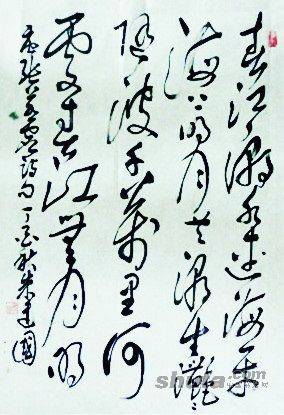 春江潮水连海平
海上明月共潮生滟滟
随波千万里何
处春江无月明
唐张若虚诗句丁酉秋朱建国